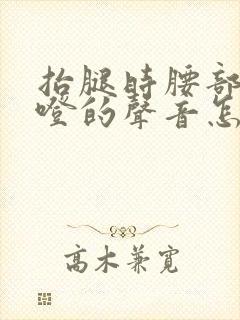 抬腿時腰部
噔的聲音怎
高木兼寬